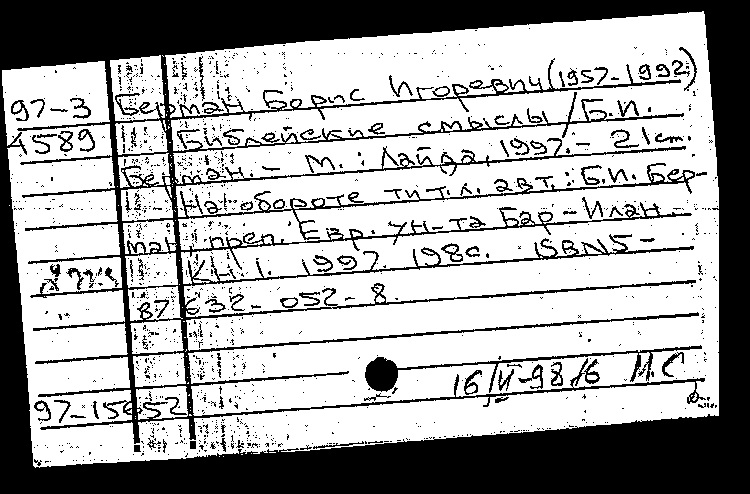 97-3 Берман, Борис Игоревич (1957-1992)
4589 Библейские смыслы / Б.И.
Берман. - М. : Лайда, 1997. - 21 см.
На обороте тит. л. авт. : Б.И. Бер-
ман, преп. Евр. ун-та Бар-Илан. -
Кн. 1. 1997. 198с. ISBN 5-
87632-052-8.
16/VI-98 М.С
97-15652